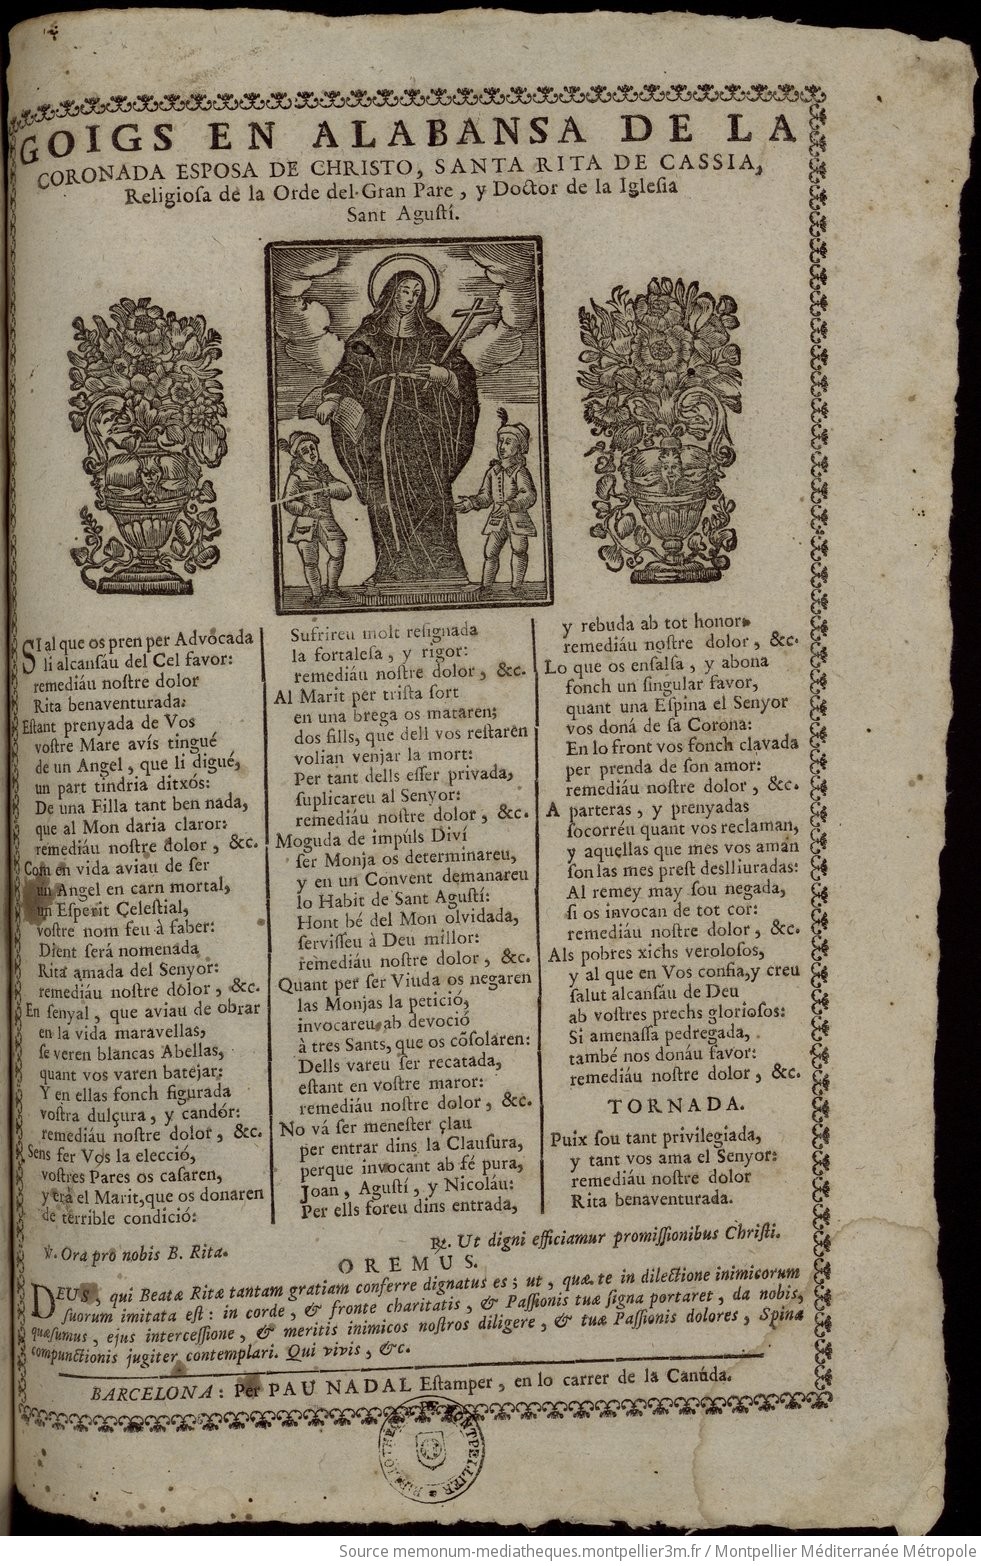 GOIGS EN ALABANSA DE LA
CORONADA ESPOSA DE CHRISTO, SANTA RITA DE CASSIA,
Religiosa de la Orde del Gran Pare, y Doctor de la Iglesia
Sant Agustí.
SI al que os pren per Advocada
li alcansáu del Cel favor:
remediáu nostre dolor
Rita benaventurada.
Estant prenyada de Vos
vostre Mare avís tingué
de un Angel, que li digué,
un part tindria ditxós:
De una Filla tant ben nada,
que al Mon daria claror:
remediáu nostre dolor, &c.
Com en vida aviau de ser
un Angel en carn mortal,
un Esperit Çelestial,
vostre nom feu à saber:
Dient será nomenada
Rita amada del Senyor:
remediáu nostre dolor, &c.
En senyal, que aviau de obrar
en la vida maravellas,
se veren blancas Abellas,
quant vos varen batejar:
Y en ellas fonch figurada
vostra dulçura, y candór:
remediáu nostre dolor, &c.
Sens ser Vos la elecció,
vostres Pares os casaren,
y era el Marit, que os donaren
de terrible condició:
Sufrireu molt resignada
la fortalesa, y rigor:
remediáu nostre dolor, &c.
Al Marit per trista sort
en una brega os mataren;
dos fills, que dell vos restaren
volian venjar la mort:
Per tant dells esser privada,
suplicareu al Senyor:
remediáu nostre dolor, &c.
Moguda de impúls Diví
ser Monja os determinareu,
y en un Convent demanareu
lo Habit de Sant Agustí:
Hont bé del Mon olvidada,
servisseu à Deu millor:
remediáu nostre dolor, &c.
Quant per ser Viuda os negaren
las Monjas la petició,
invocareu ab devoció
à tres Sants, que os cõsolaren:
Dells vareu ser recatada,
estant en vostre maror:
remediáu nostre dolor, &c.
No vá ser menester çlau
per entrar dins la Clausura,
perque invocant ab fé pura,
Joan, Agustí, y Nicoláu:
Per ells foreu dins entrada,
y rebuda ab tot honor:
remediáu nostre dolor, &c.
Lo que os ensalsa, y abona
fonch un singular favor,
quant una Espina el Senyor
vos doná de sa Corona:
En lo front vos fonch clavada
per prenda de son amor:
remediáu nostre dolor, &c.
A parteras, y prenyadas
socorréu quant vos reclaman,
y aquellas que mes vos aman
son las mes prest deslliuradas:
Al remey may sou negada,
si os invocan de tot cor:
remediáu nostre dolor, &c.
Als pobres xichs verolosos,
y al que en Vos confia, y creu
salut alcansáu de Deu
ab vostres prechs gloriosos:
Si amenassa pedregada,
també nos donáu favor:
remediáu nostre dolor, &c.
TORNADA.
Puix sou tant privilegiada,
y tant vos ama el Senyor:
remediáu nostre dolor
Rita benaventurada.
℣. Ora pro nobis B. Rita.
℟. Ut digni efficiamur promissionibus Christi.
OREMUS.
DEUS, qui Beatæ Ritæ tantam gratiam conferre dignatus es; ut, quæ te in dilectione inimicorum
suorum imitata est: in corde, & fronte charitatis, & Passionis tuæ signa portaret, da nobis,
quæsumus, ejus intercessione, & meritis inimicos nostros diligere, & tuæ Passionis dolores, Spina
compunctionis jugiter contemplari. Qui vivis, &c.
BARCELONA: Per PAU NADAL Estamper, en lo carrer de la Canúda.
BIBLIOTHEQUE DE MONTPELLIER
Source memonum-mediatheques.montpellier3m.fr / Montpellier Méditerranée Métropole